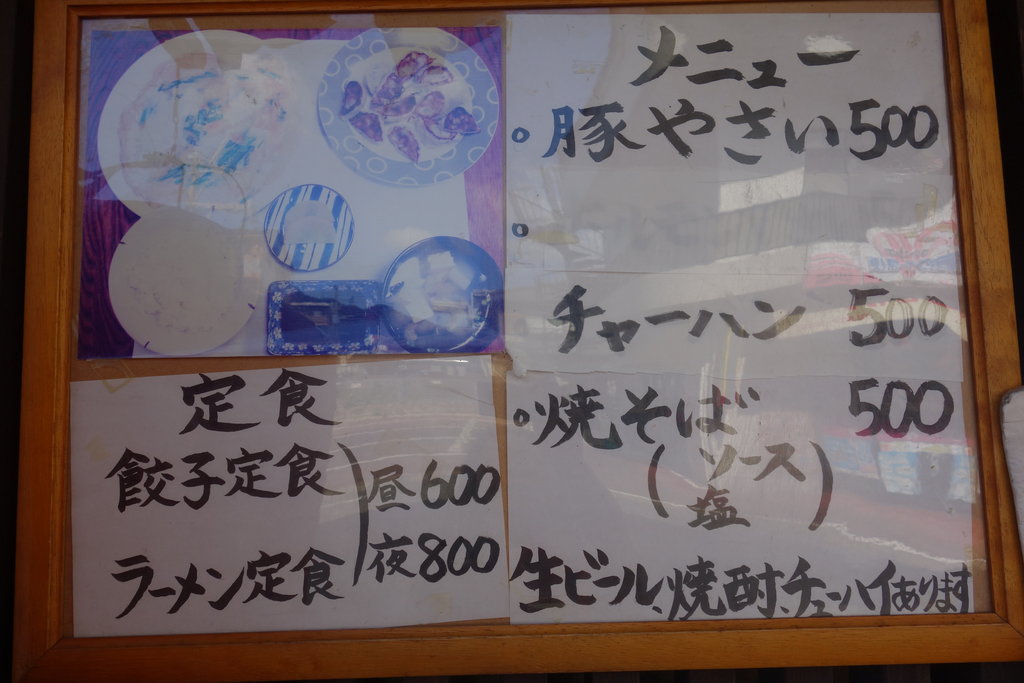 メニュー
豚やさい500
チャーハン 500
焼そば 500
(ソース
塩)
生ビール、焼酎、チューハイあります
定食
餃子定食
ラーメン定食
昼600
夜800